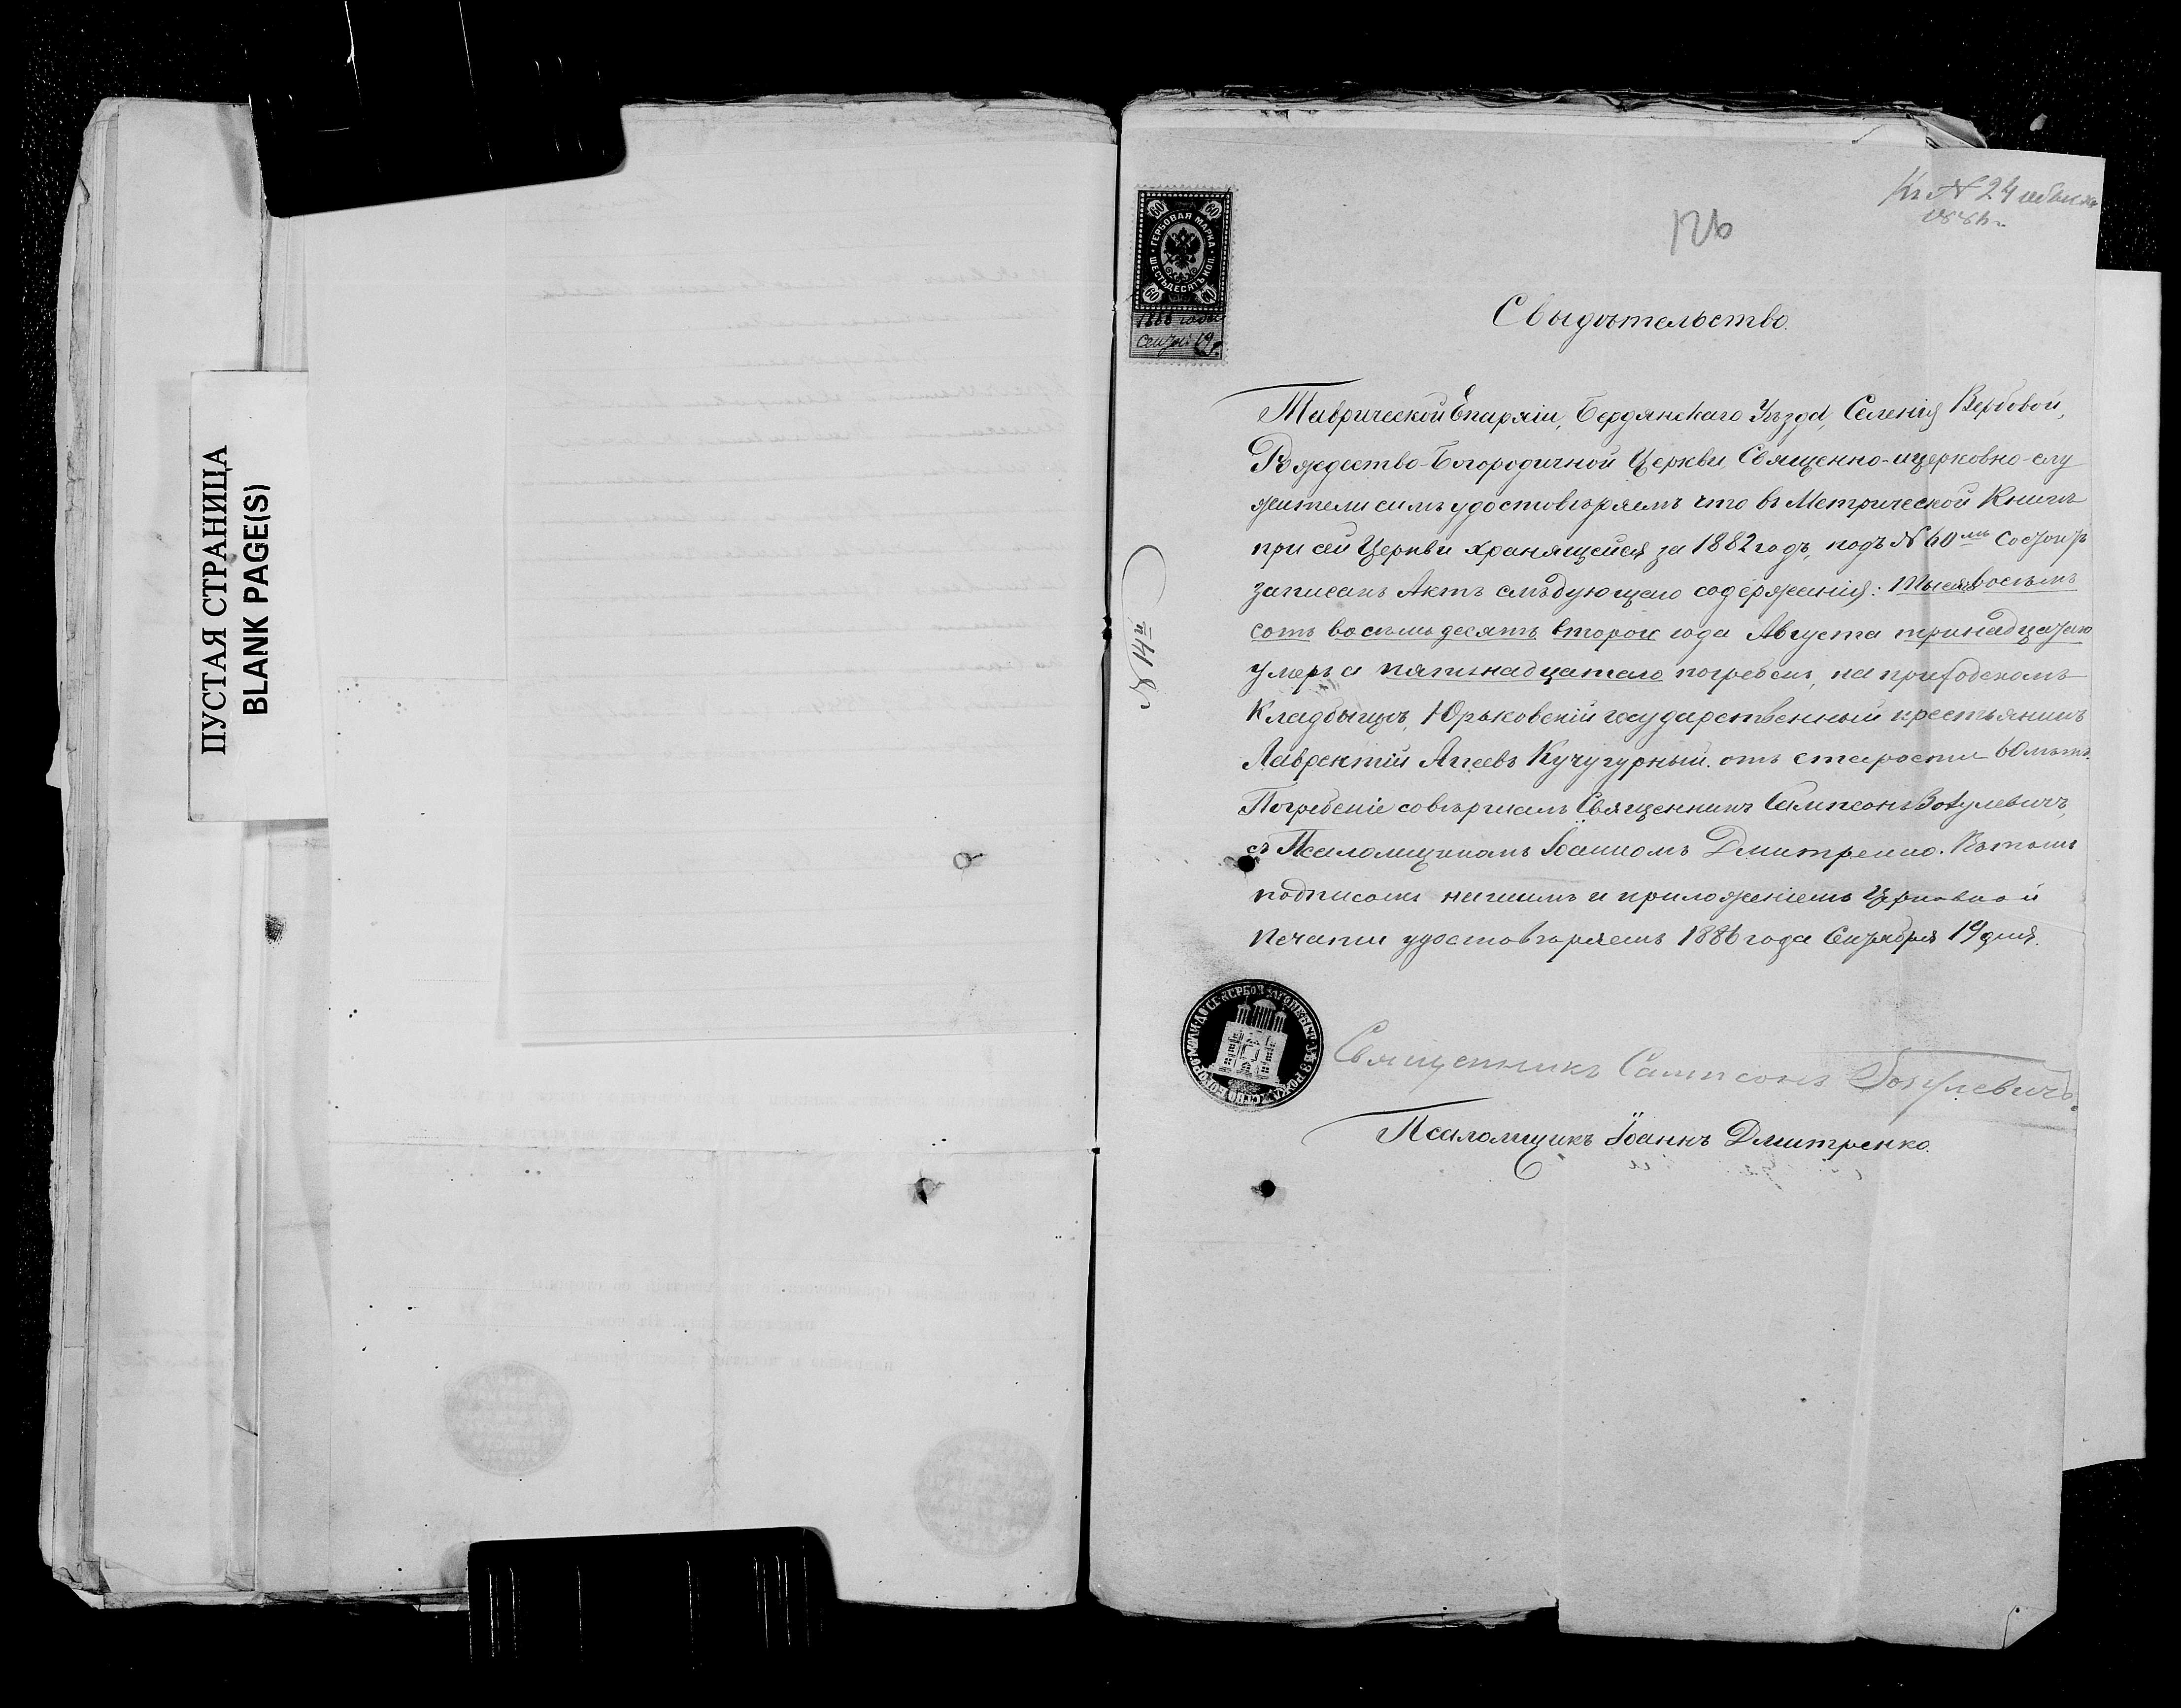 ПУСТАЯ СТРАНИЦА
BLANK PAGE(S)
Къ № 24
1886 г.
126
60 60
ГЕРБОВАЯ МАРКА
ШЕСТЬДЕСЯТЪ КОП.
60 60
1886 года
19
Свидѣтельство.
Таврической Епархіи, Бердянскаго Уѣзда, Селенія Вербовой,
Рождество-Богородичной Церкви Священно-церковно-слу
жители симъ удостовѣряемъ что въ Метрической Книгѣ
при сей Церкви хранящейся за 1882 годъ, подъ № 60мъ состоитъ
записанъ Актъ слѣдующаго содержанія: Тысяча восемь
сотъ восемьдесятъ второго года Августа тринадцатаго
умеръ а пятьнадцатаго погребенъ, на приходскомъ
Кладбыщѣ, Юрьковскій государственный крестьянинъ
Лаврентій Агеевъ Кучугурный. отъ старости 60 лѣтъ.
Погребеніе совѣршалъ Священникъ Сампсонъ Вотулевичъ,
съ Псаломщикомъ Іоанномъ Дмитренко. Въ томъ
подписомъ нашимъ и приложеніемъ Церковной
Печати удостовѣряемъ 1886 года Сентября 19 дня.
№ 14й
Священникъ Сампсонъ
Псаломщикъ Іоаннъ Дмитренко.